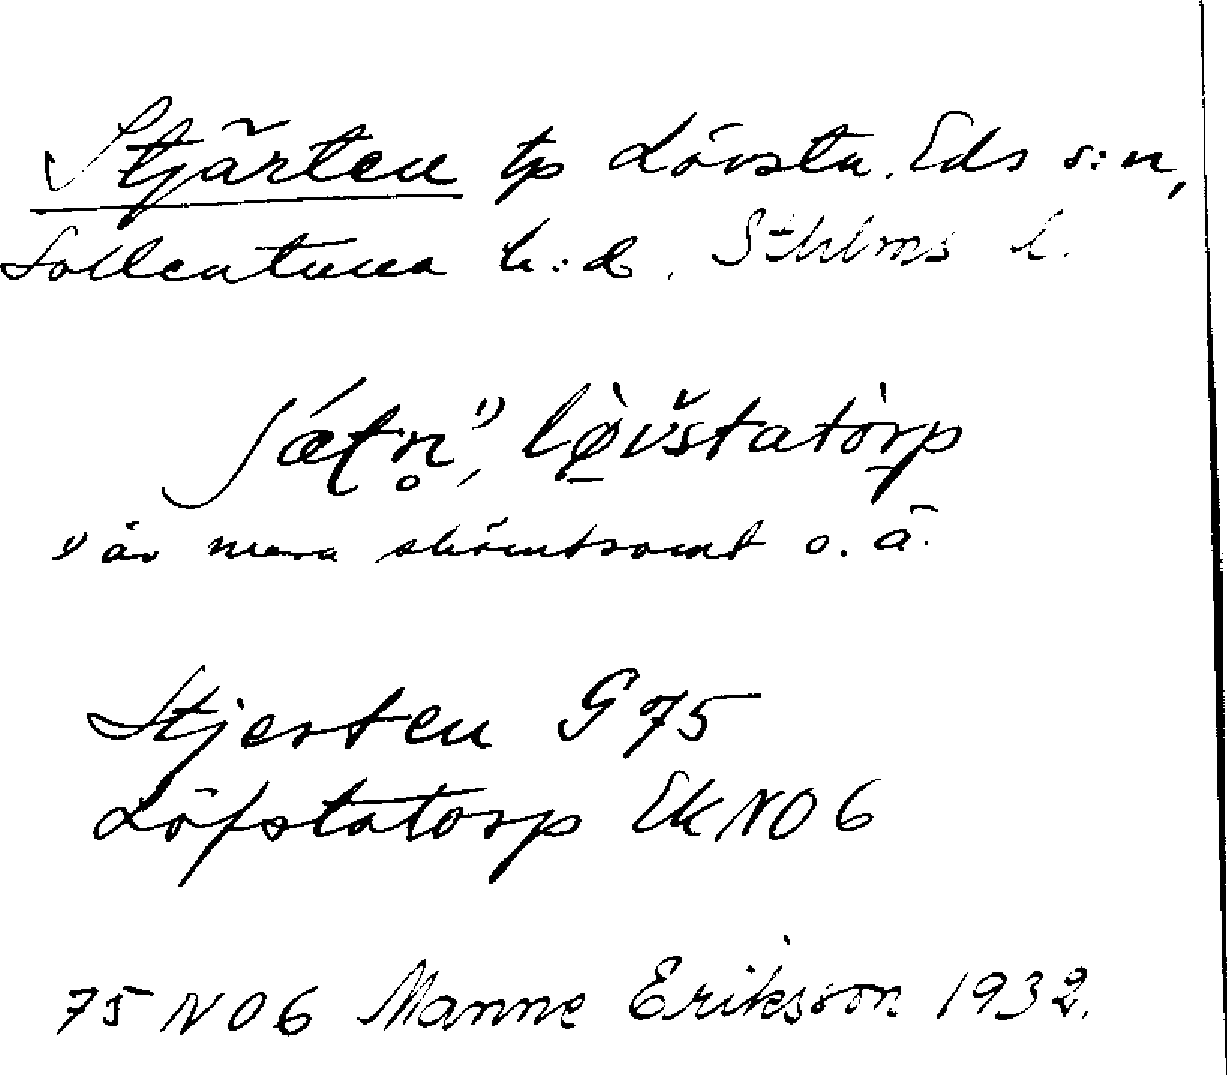 Stjärten tp Lövsta. Eds s:n,
Sollentuna h:d. Sthlms l.
ʃǽʈn̥¹⁾, lø̀vstatòrp
¹⁾ är mera skämtsamt o. ä.
Stjerten G 75
Löfstatorp Ek NO 6
75 NO 6 Manne Eriksson 1932.